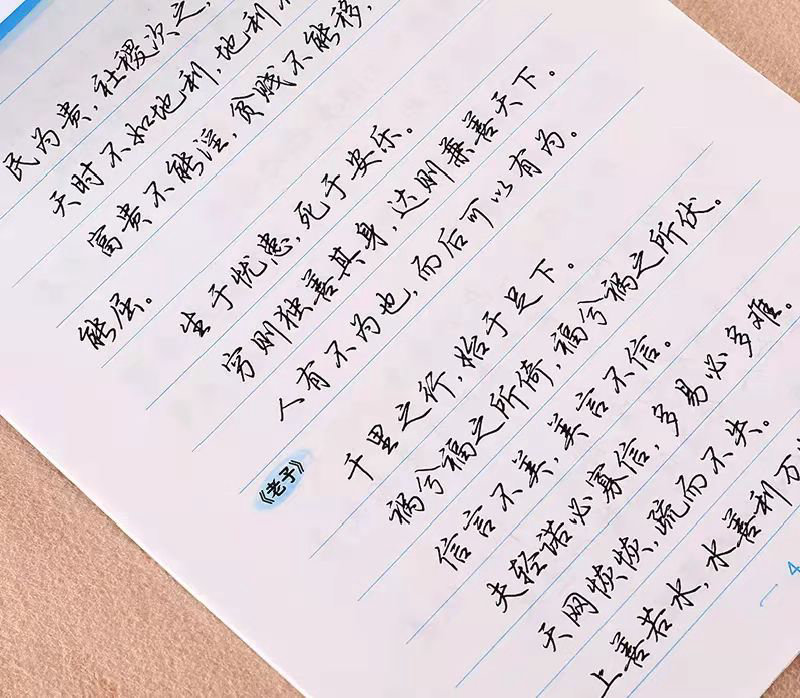 民为贵,社稷次之,
天时不如地利,地利不
富贵不能淫,贫贱不能移,
能屈。
生于忧患,死于安乐。
穷则独善其身,达则兼善天下。
人有不为也,而后可以有为。
《老子》
千里之行,始于足下。
祸兮福之所倚,福兮祸之所伏。
信言不美,美言不信。
夫轻诺必寡信,多易必多难。
天网恢恢,疏而不失。
上善若水,水善利万
4